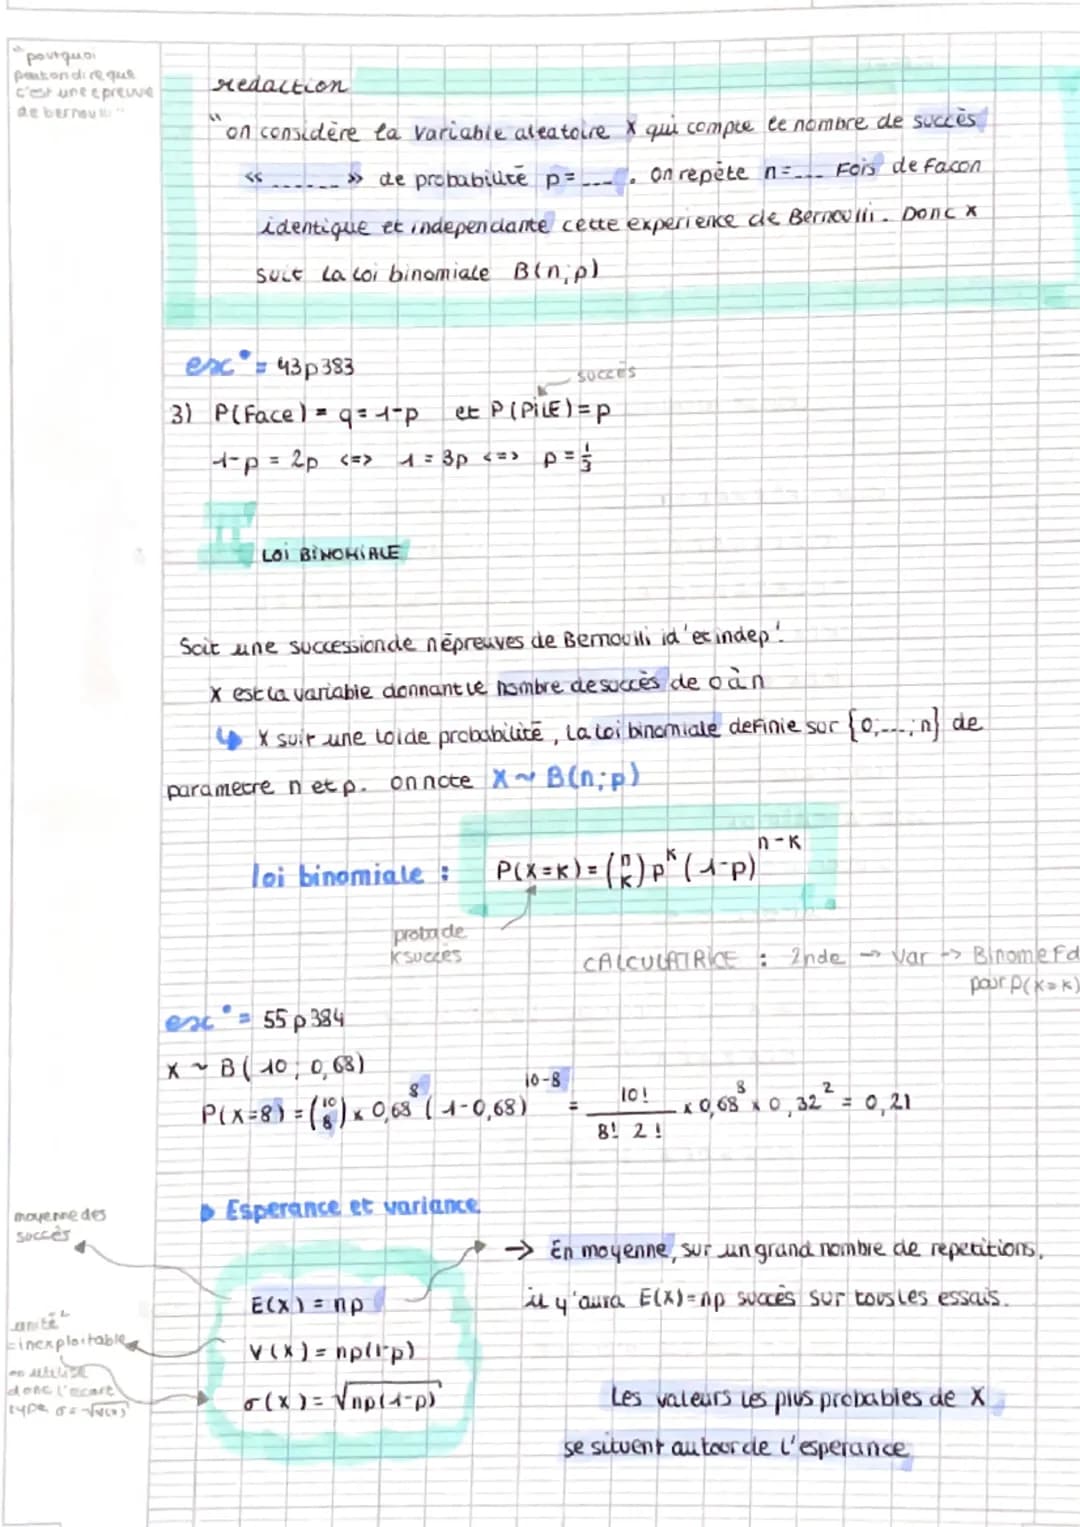 "pourquoi
peut on dire que
c'est une epreuve
de bernoulli"
redaction
"on considère la variable aleatoire X qui compte le nombre de succès
« ...... » de probabilité p=.... . On repète n=.... Fois de facon
identique et independante cette experience de Bernoulli. Donc x
suit la loi binomiale B(n;p)
exc° = 43p383
succès
3) P(Face) = q = 1-p et P(PiLE) = p
1-p = 2p <=> 1 = 3p <=> p = 1/3
II
LOI BINOMIALE
Soit une succession de n épreuves de Bernoulli id' et indep'.
X est la variable donnant le nombre de succès de 0 à n
↳ X suit une loi de probabilité, la loi binomiale definie sur {0;...;n} de
parametre n et p. on note X ~ B(n;p)
loi binomiale : P(X=K) = (n K) p^K (1-p)^n-K
proba de
K succès
CALCULATRICE : 2nde → Var → BinomeFd
pour P(X=K)
exc° = 55 p 384
X ~ B(10; 0,68)
P(X=8) = (10 8) x 0,68^8 (1-0,68)^10-8 = 10! / 8! 2! x 0,68^8 x 0,32^2 = 0,21
Esperance et variance
moyenne des
succès
→ En moyenne, sur un grand nombre de repetitions,
E(X) = np
il y'aura E(X)=np succès sur tous les essais.
unité²
=inexploitable
V(X) = np(1-p)
on utilise
donc l'ecart
type σ=√V(X)
σ(X) = √np(1-p)
Les valeurs les plus probables de X
se situent autour de l'esperance